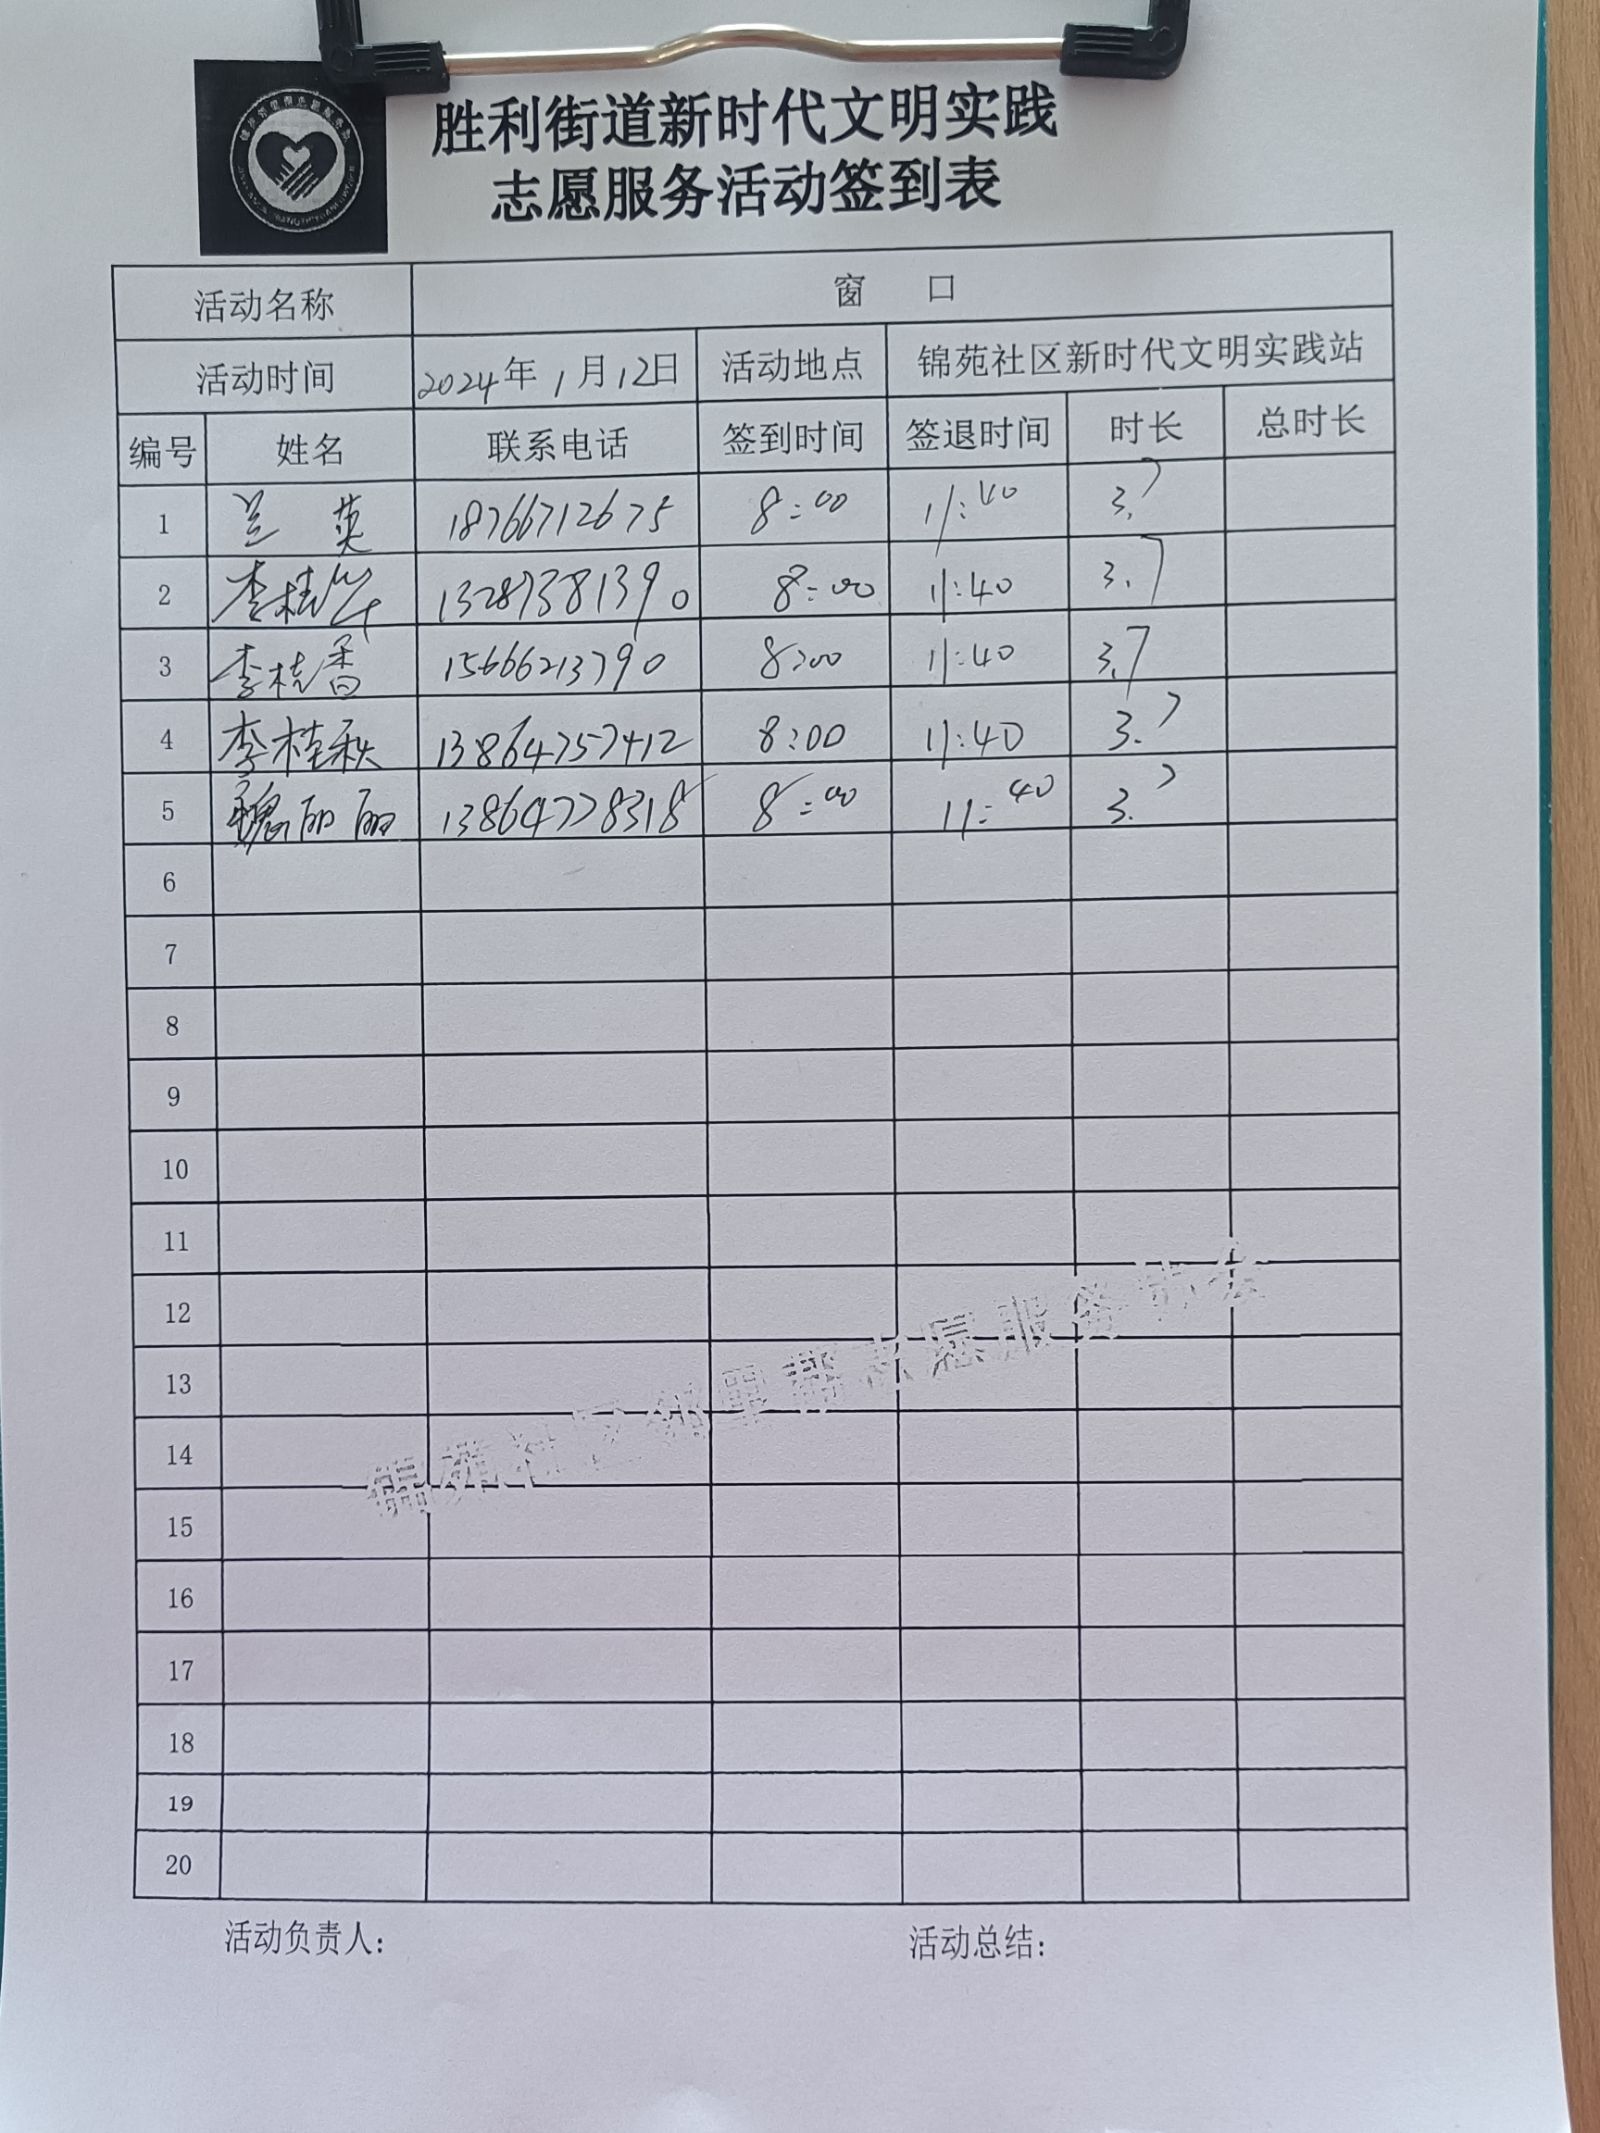 胜利街道新时代文明实践
志愿服务活动签到表
活动名称 窗 口
活动时间 2024年 1月12日 活动地点 锦苑社区新时代文明实践站
编号 姓名 联系电话 签到时间 签退时间 时长 总时长
1 兰英 18766712675 8:00 11:40 3.7
2 李桂华 13287381390 8:00 11:40 3.7
3 李桂香 15666213790 8:00 11:40 3.7
4 李桂秋 13864757412 8:00 11:40 3.7
5 魏丽丽 13864778318 8:00 11:40 3.7
6
7
8
9
10
11
12
13
14
15
16
17
18
19
20
锦苑社区邻里帮志愿服务协会
活动负责人: 活动总结: